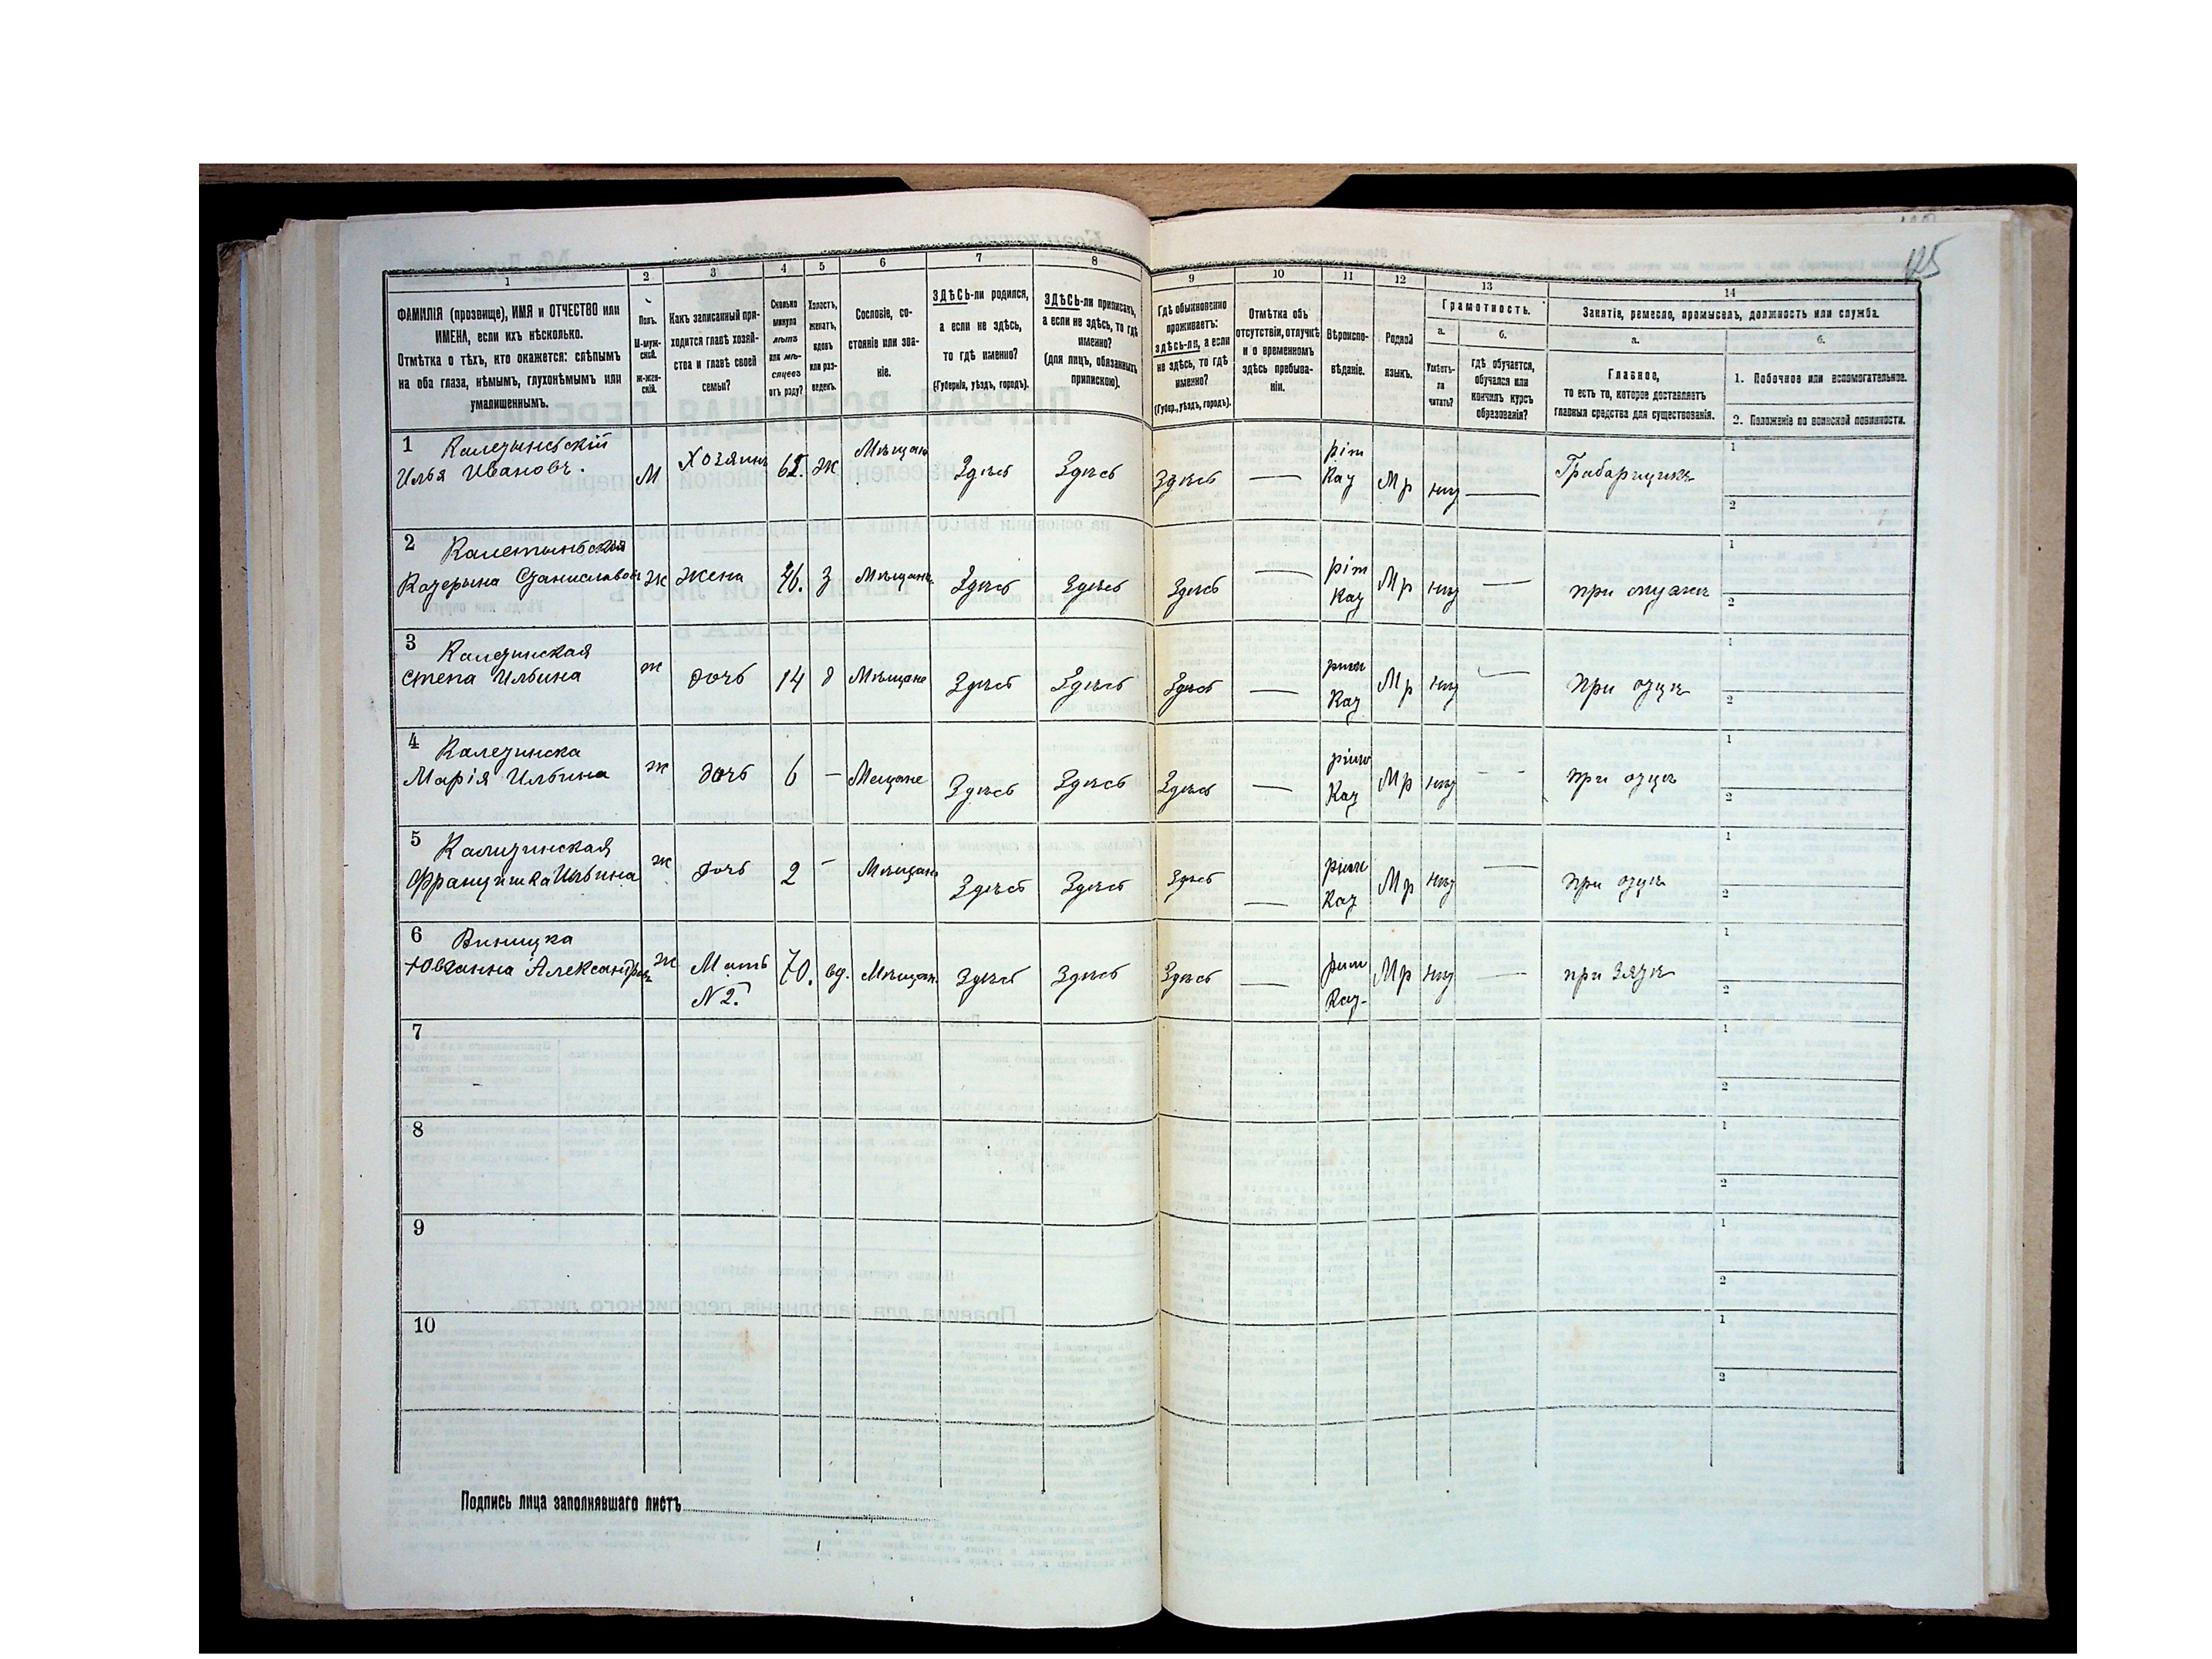 125
1 2 3 4 5 6 7 8 9 10 11 12 13 14
ФАМИЛІЯ (прозвище), ИМЯ и ОТЧЕСТВО или
ИМЕНА, если ихъ нѣсколько.
Отмѣтка о тѣхъ, кто окажется: слѣпымъ
на оба глаза, нѣмымъ, глухонѣмымъ или
умалишеннымъ.
Полъ.
М-муж-
ской.
ж-жен-
скій.
Какъ записанный при-
ходится главѣ хозяй-
ства и главѣ своей
семьи?
Сколько
минуло
лѣтъ
или мѣ-
сяцевъ
отъ роду?
Холостъ,
женатъ,
вдовъ
или раз-
веденъ.
Сословіе, со-
стояніе или зва-
ніе.
ЗДѢСЬ-ли родился,
а если не здѣсь,
то гдѣ именно?
(Губернія, уѣздъ, городъ).
ЗДѢСЬ-ли приписанъ,
а если не здѣсь, то гдѣ
именно?
(для лицъ, обязанныхъ
припискою).
Гдѣ обыкновенно
проживаетъ:
здѣсь-ли, а если
не здѣсь, то гдѣ
именно?
(Губер., уѣздъ, городъ).
Отмѣтка объ
отсутствіи, отлучкѣ
и о временномъ
здѣсь пребыва-
ніи.
Вѣроиспо-
вѣданіе.
Родной
языкъ.
Грамотность.
а.
Умѣетъ-
ли
читать?
б.
гдѣ обучается,
обучался или
кончилъ курсъ
образованія?
Занятіе, ремесло, промыселъ, должность или служба.
а.
Главное,
то есть то, которое доставляетъ
главныя средства для существованія.
б.
1. Побочное или вспомогательное.
2. Положеніе по воинской повинности.
1 Калединьскій
Илья Ивановъ. М Хозяинъ ж Мѣщан Здѣсь Здѣсь Здѣсь — рім Кац Мр нѣц — Грабарщикъ 1 2
2
Казерына Станиславов ж жена 46. З Мѣщанъ Здѣсь Здѣсь Здѣсь — рім Кац Мр нѣц — при мужѣ 1 2
3 Калединская
Степа Ильина ж дочь 14 д Мѣщане Здѣсь Здѣсь Здѣсь — рим Кац Мр нѣц — При оццѣ 1 2
4 Калединска
Марія Ильина ж дочь 6 — Мещане Здѣсь Здѣсь Здѣсь — рим Кац Мр нѣц — - при оццѣ 1 2
5 Калидинская
Францишка Ильина ж дочь 2 - Мѣщан Здѣсь Здѣсь Здѣсь — рим Кац Мр нѣц — при оццѣ 1 2
6 Виницка
Александров ж Мать N 2. 70. вд. Мѣщан. Здѣсь Здѣсь Здѣсь — рим Кац- Мр нѣц — при Зяцѣ 1 2
7 1 2
8 1 2
9 1 2
10 1 2
Подпись лица заполнявшаго листъ